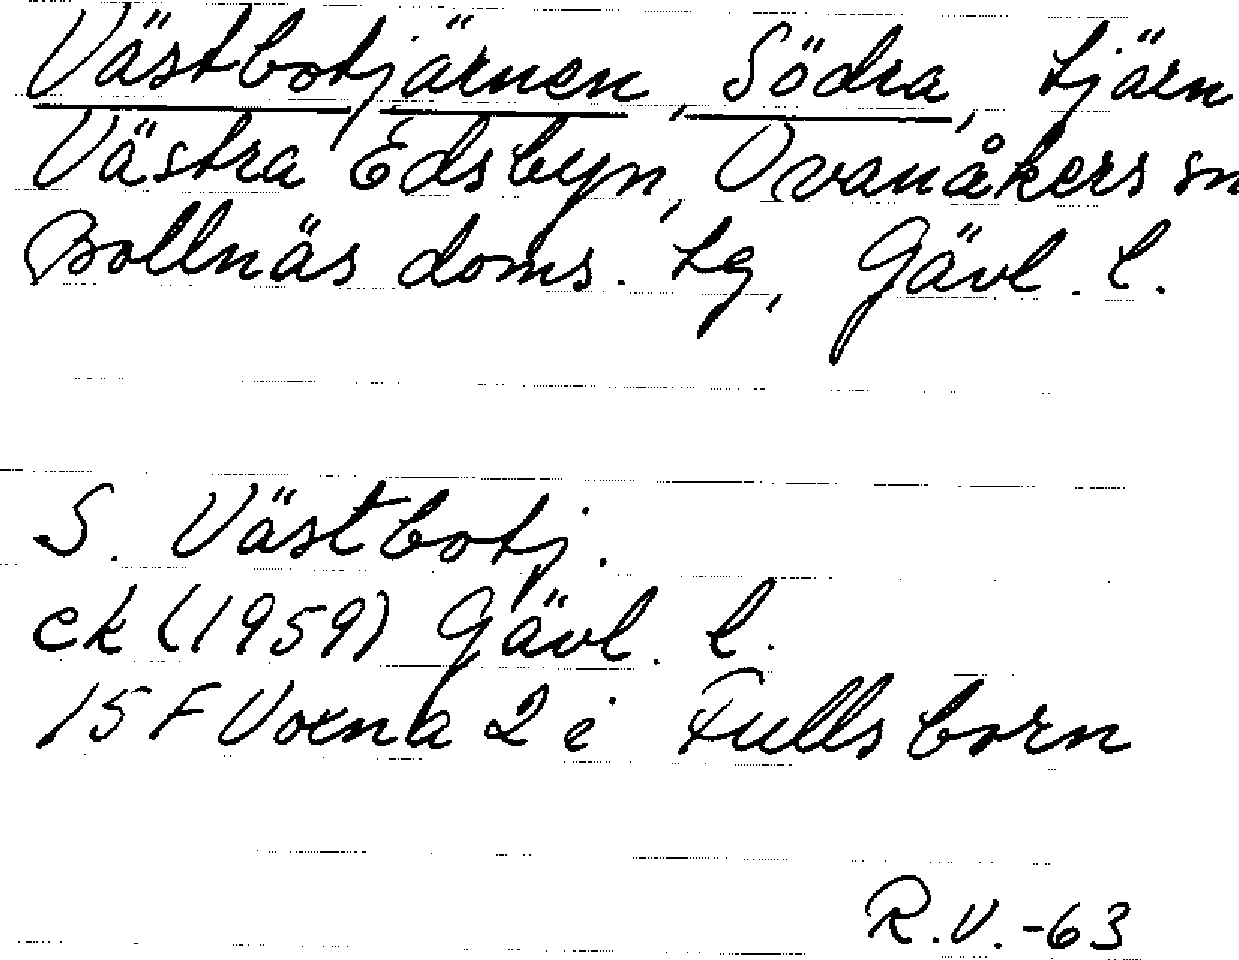 Västbotjärnen, Södra, tjärn
Västra Edsbyn, Ovanåkers sn
Bollnäs doms. tg, Gävl. l.
S. Västbotj.
ek (1959) Gävl. l.
15 F Voxna 2 e Fullsborn
R.V.-63